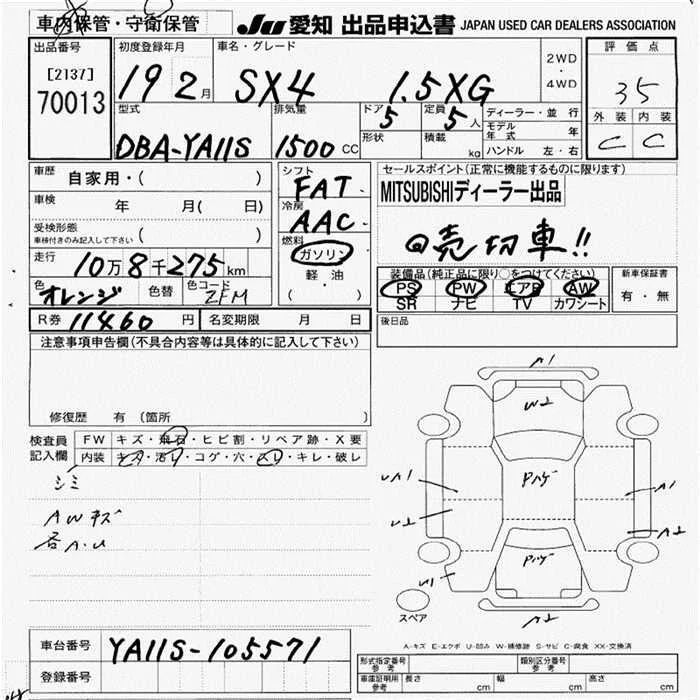 車内保管・守衛保管
JU 愛知 出品申込書 JAPAN USED CAR DEALERS ASSOCIATION
出品番号
[2137]
70013
初度登録年月
19 2月
車名・グレード
SX4 1.5XG
2WD
・
4WD
評価点
35
外装 内装
C C
型式
DBA-YA11S
排気量
1500 CC
ドア
5
形状
定員
5人
積載
kg
ディーラー・並行
モデル年式 年
ハンドル 左・右
車歴
自家用・( )
車検
年 月( 日)
受検形態
車検付きのみ記入して下さい ( )
走行
10万8千275km
色
オレンジ
色替
色コード
ZFM
シフト
FAT
冷房
AAC
燃料
ガソリン
軽油
( ・ )
R券 11460円
名変期限 月 日
セールスポイント(正常に機能するものに限ります)
MITSUBISHIディーラー出品
売切車!!
装備品(純正品に限り○をつけてください)
PS PW エアB AW
SR ナビ TV カワシート
新車保証書
有・無
後日品
注意事項申告欄(不具合内容等は具体的に記入して下さい)
修復歴 有(箇所 )
検査員記入欄
FW キズ・飛石・ヒビ割・リペア跡・X要
内装 キズ・汚レ・コゲ・穴・スレ・キレ・破レ
シミ
AWキズ
各A.U
A1
W2
Pハゲ
UA1
A1
U2
A2
Pハゲ
U1
A2
スペア
A-キズ E-エクボ U-凹み W-補修跡 S-サビ C-腐食 XX-交換済
車台番号 YA11S-105571
登録番号
形式指定番号
参考
類別区分番号
参考
車庫証明用
参考
長さ cm
幅 cm
高さ cm